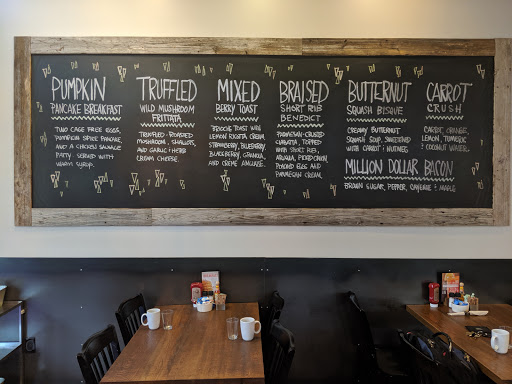 PUMPKIN
PANCAKE BREAKFAST
TWO CAGE FREE EGGS,
PUMPKIN SPICE PANCAKE
AND A CHICKEN SAUSAGE
PATTY. SERVED WITH
WARM SYRUP.
TRUFFLED
WILD MUSHROOM
FRITTATA
TRUFFLED-ROASTED
MUSHROOM, SHALLOTS,
AND GARLIC & HERB
CREAM CHEESE.
MIXED
BERRY TOAST
BRIOCHE TOAST WITH
LEMON RICOTTA CREAM
STRAWBERRY, BLUEBERRY,
BLACKBERRY, GRANOLA,
AND CREME ANGLAISE.
BRAISED
SHORT RIB
BENEDICT
PARMESAN-CRUSTED
CIABATTA, TOPPED
WITH SHORT RIBS,
ARUGULA, PICKLED ONION,
POACHED EGGS AND
PARMESAN CREAM.
BUTTERNUT
SQUASH BISQUE
CREAMY BUTTERNUT
SQUASH SOUP, SWEETENED
WITH CARROT & NUTMEG
CARROT
CRUSH
CARROT, ORANGE,
LEMON, TURMERIC
& COCONUT WATER.
MILLION DOLLAR BACON
BROWN SUGAR, PEPPER, CAYENNE & MAPLE